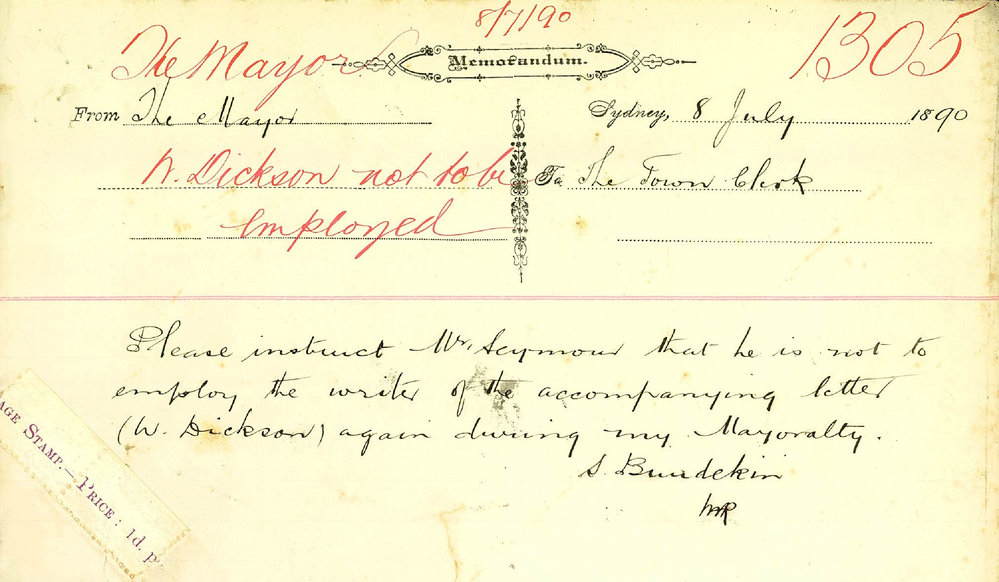 8/7/90
The Mayor
1305
Memorandum.
From The Mayor
Sydney, 8 July 1890
W. Dickson not to be
To The Town Clerk
employed
Please instruct Mr. Seymour that he is not to
employ the writer of the accompanying letter
(W. Dickson) again during my Mayoralty.
S. Burdekin
AGE STAMP.—PRICE: 1d. p